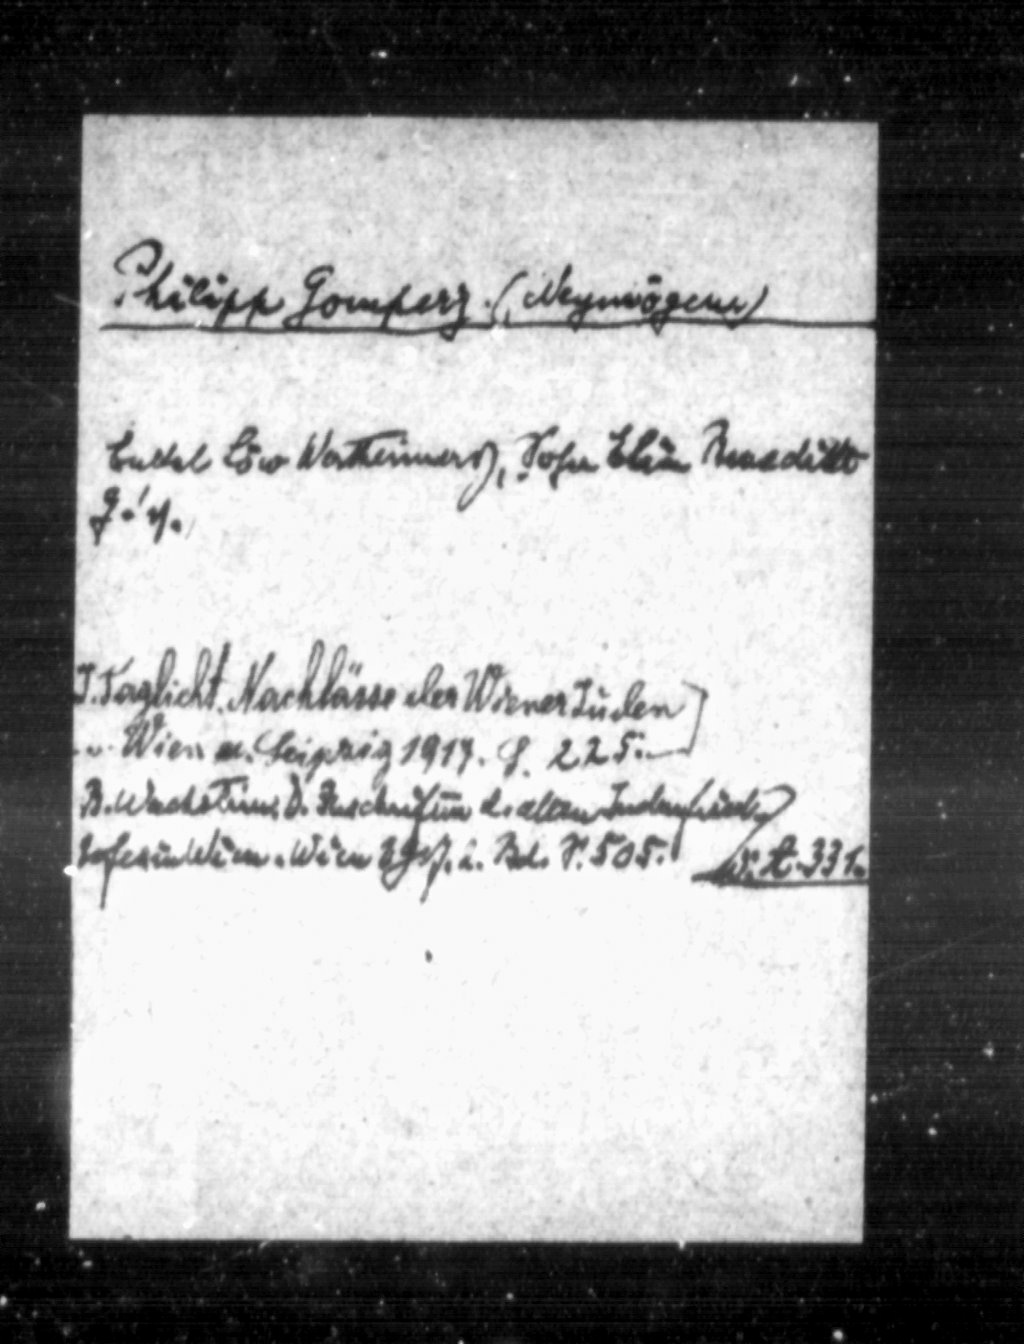 Philipp Gomperz. (Neymwögen)
Enkel Löw Wertheimers, Sohn Elias Benedikt
G.'s.
I. Taglicht. Nachlässe der Wiener Juden
Wien u. Leipzig 1917. S. 225.
B. Wachstein, d. Inschriften d. alten Judenfried-
hofes in Wien. Wien 1917. 2. Bd. S. 505. 331.